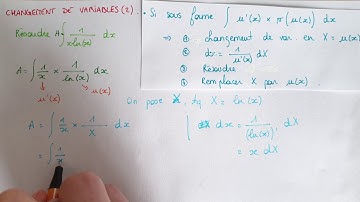 CHANGEMENT DE VARIABLES (2)
Résoudre A = ∫ 1/(x ln(x)) dx
A = ∫ 1/x × 1/ln(x) dx
u'(x) u(x)
• Si sous forme ∫ u'(x) × f(u(x)) dx
⇒ ① changement de var. en X = u(x)
② dx = 1/u'(x) dX
③ Résoudre
④ Remplacer X par u(x).
On pose X, tq X = ln(x)
A = ∫ 1/x × 1/X dx
dx = 1/(ln(x))' dX
= x dX
= ∫ 1/x